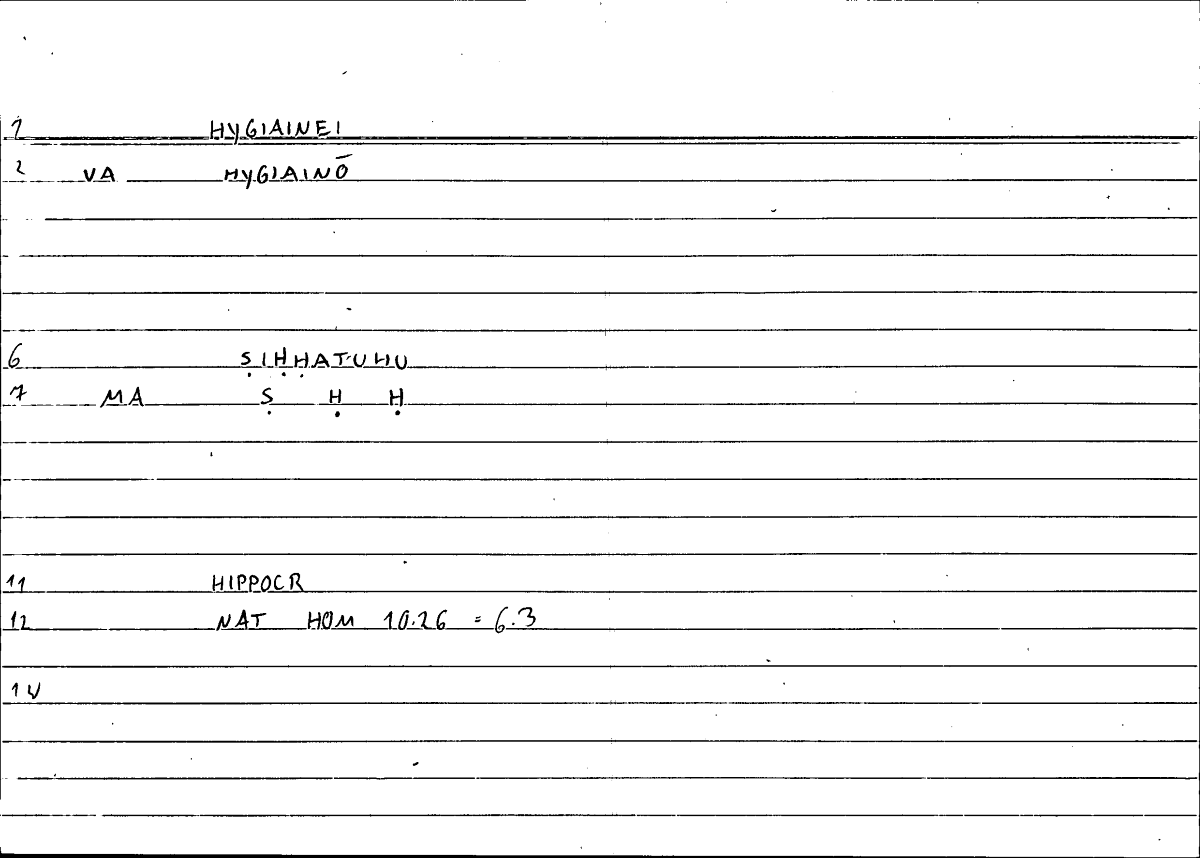 1 HYGIAINEI
2 VA HYGIAINŌ
6 ṢIḤḤATUHU
7 MA Ṣ Ḥ Ḥ
11 HIPPOCR
12 NAT HOM 10.26 = 6.3
14